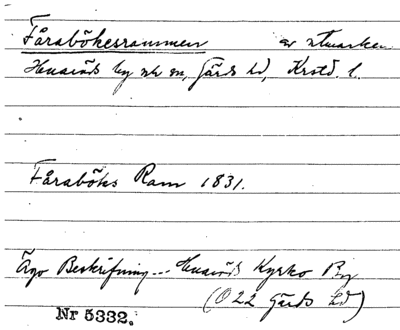 Fårabökesrammen av utmarken
Huaröds by och sn, Gärds hd, Krstd. l.
Fåraböks Ram 1831.
Ägo Beskrifning... Huaröds Kyrko By
(O 22 Gärds hd)
Nr 5332.